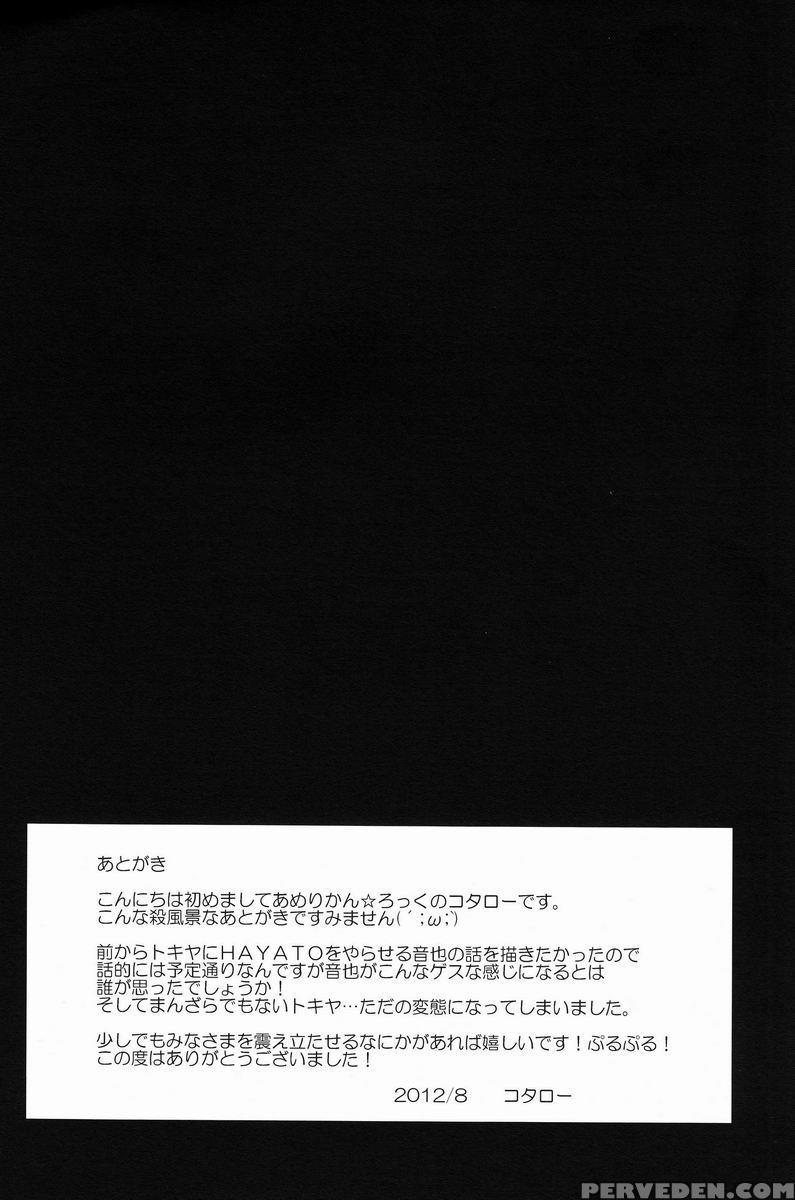 あとがき
こんにちは初めましてあめりかん☆ろっくのコタローです。
こんな殺風景なあとがきですみません(´;ω;`)
前からトキヤにHAYATOをやらせる音也の話を描きたかったので
話的には予定通りなんですが音也がこんなゲスな感じになるとは
誰が思ったでしょうか！
そしてまんざらでもないトキヤ…ただの変態になってしまいました。
少しでもみなさまを震え立たせるなにかがあれば嬉しいです！ぷるぷる！
この度はありがとうございました！
2012/8　コタロー
PERVEDEN.COM